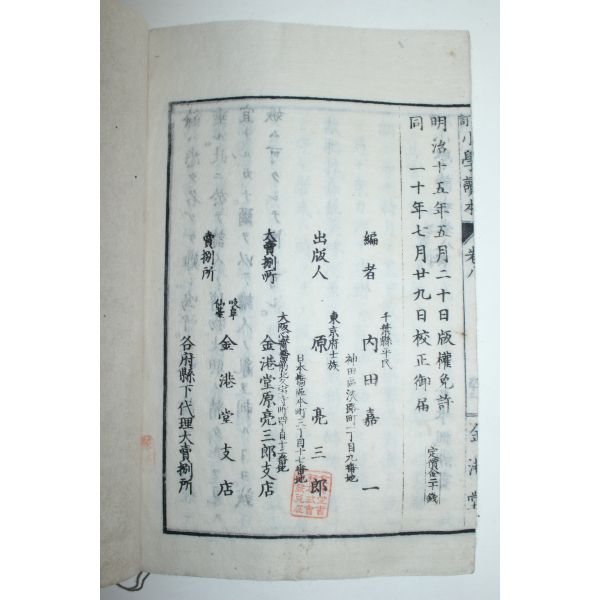 訂 小學讀本 卷八 金港堂
明治十五年五月二十日版權免許
同 一十年七月廿九日校正御届
定價金二十錢
千葉縣平民
編者 內田嘉一
神田區淡路町二丁目九番地
東京府士族
出版人 原亮三郎
日本橋區本町三丁目十七番地
大賣捌所 金港堂原亮三郎支店
岐阜
仙臺
賣捌所 金港堂支店
各府縣下代理大賣捌所